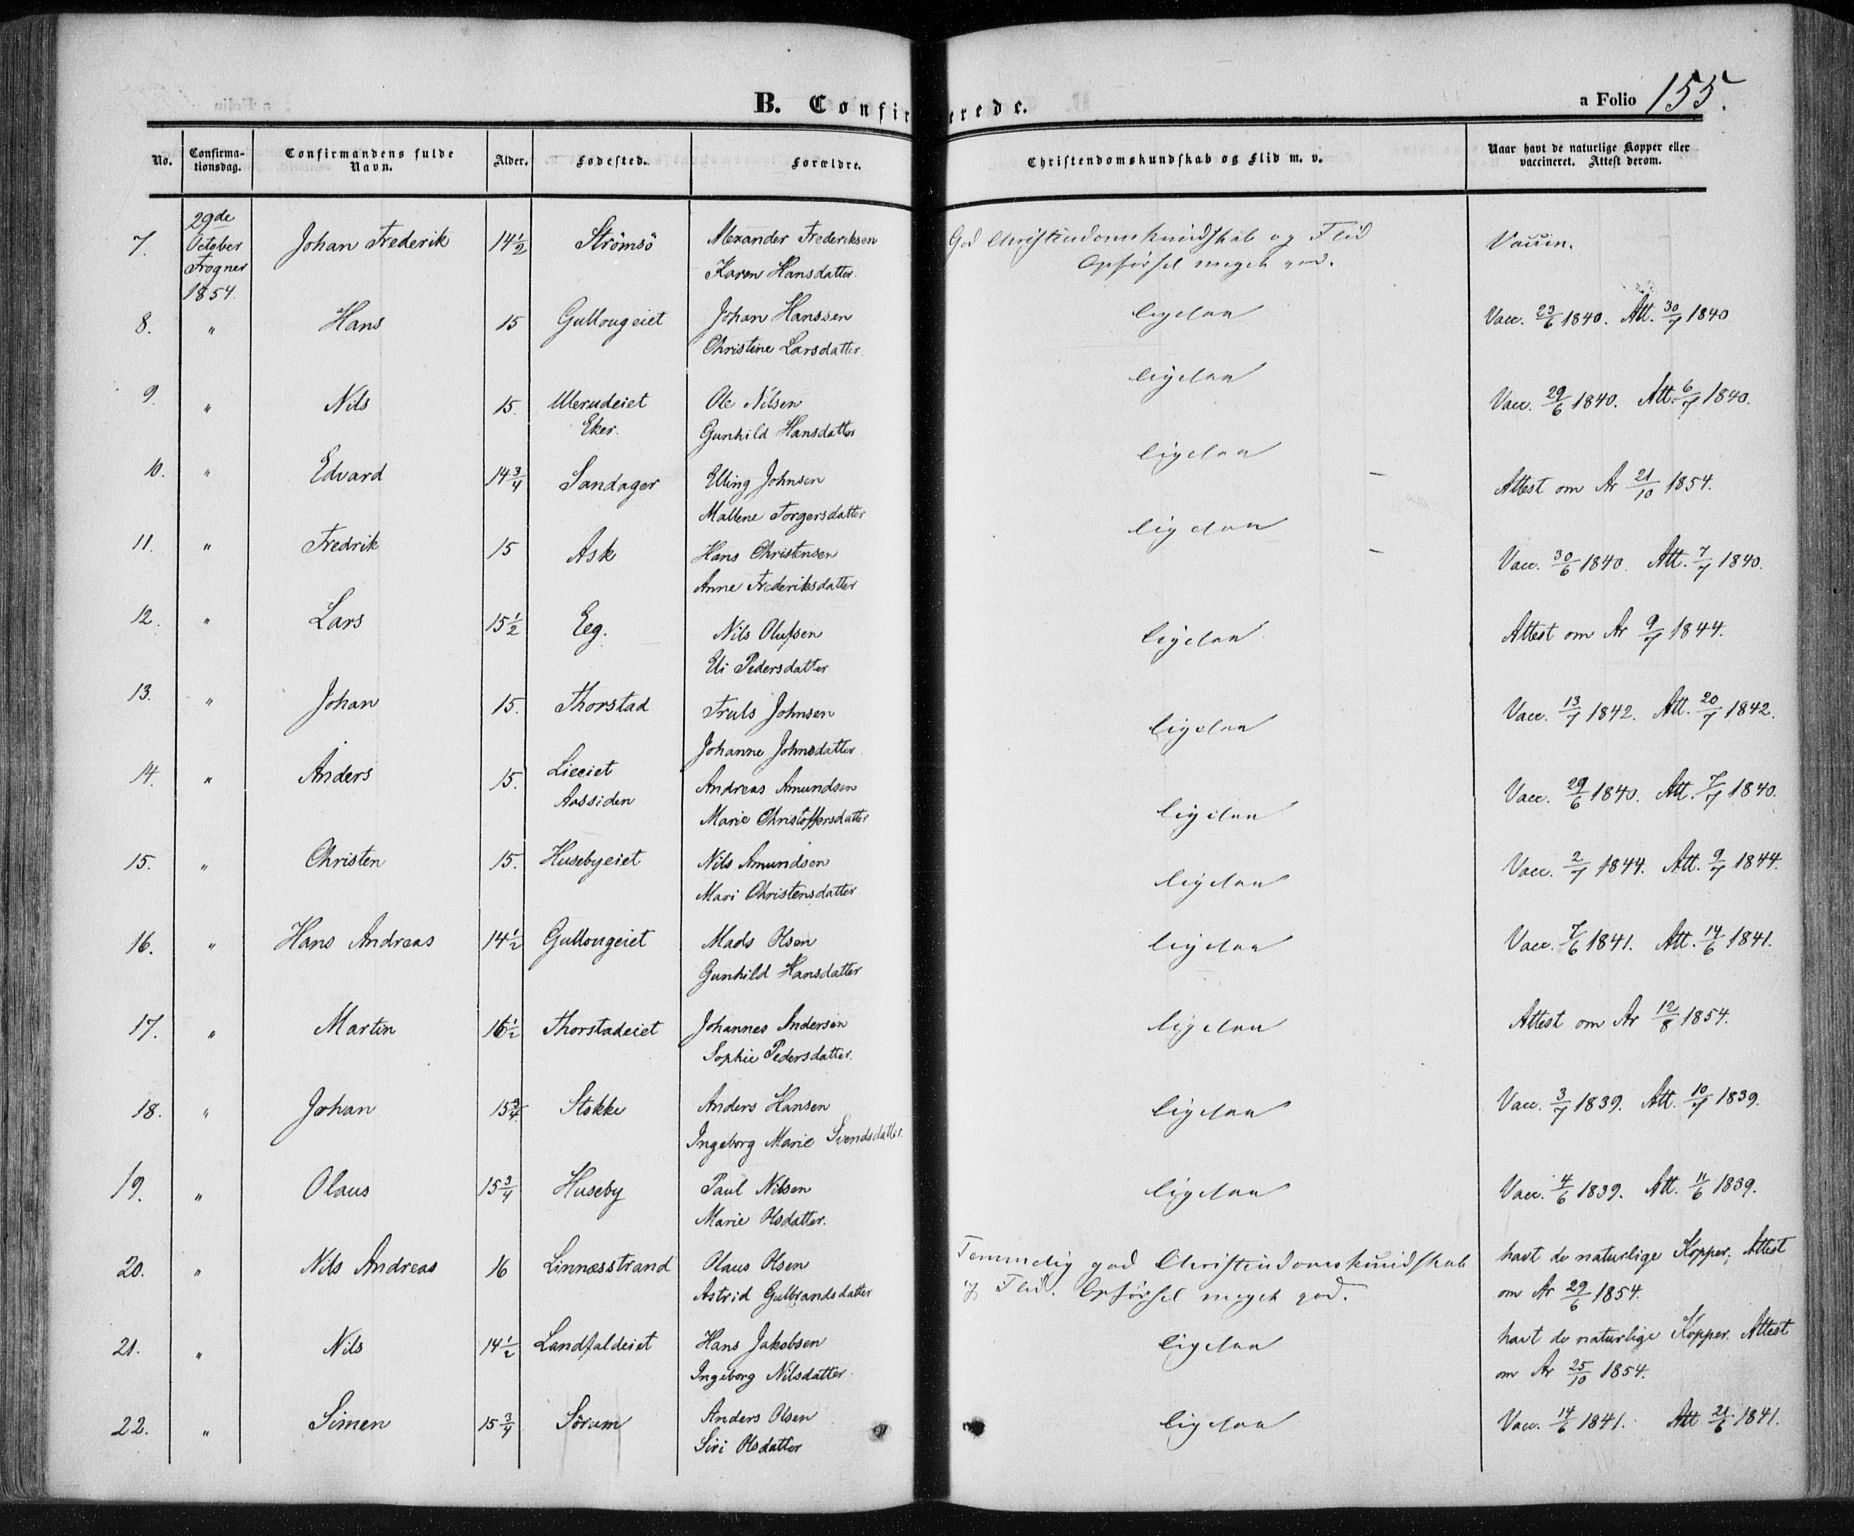 B. Confirmerede.
a Folio 155.
No. Confirmationsdag. Confirmandens fulde Navn. Alder. Fødested. Forældre. Christendomskundskab og Flid m. v. Naar havt de naturlige Kopper eller vaccineret. Attest derom.
7. 29de October Frogner 1854. Johan Frederik 14 1/2 Strömsö Alexander Frederiksen God Christendomskundskab og Flid Vaccin.
Karen Hansdatter. Opførsel meget god.
8. " Hans 15 Gullougeiet Johan Hanssen ligelsaa Vacc. 23/6 1840. Att. 30/7 1840
Christine Larsdatter.
9. " Nils 15. Ulerudeiet Ole Nilsen ligesaa Vacc. 29/6 1840. Att. 6/7 1840.
Eker. Gunhild Hansdatter
10. " Edvard 14 3/4 Sandager Elling Johnsen ligesaa Attest om Ar 21/10 1854.
Mallene Torgersdatter
11. " Fredrik 15 Ask Hans Christensen ligesaa Vacc. 30/6 1840. Att. 7/7 1840.
Anne Frederiksdatter
12. " Lars 15 1/2 Eeg. Nils Olufsen ligesaa Attest om Ar 9/7 1844.
Eli Pedersdatter
13. " Johan 15. Thorstad Truls Johnsen ligesaa Vacc. 13/7 1842. Att. 20/7 1842.
Johanne Johnsdatter
14. " Anders 15. Lieeiet Andreas Amundsen ligesaa Vacc. 29/6 1840. Att. 7/7 1840.
Aassiden Marie Christoffersdatter
15. " Christen 15. Husebyeiet Nils Amundsen ligesaa Vacc. 2/7 1844. Att. 9/7 1844.
Mari Christensdatter
16. " Hans Andreas 14 1/2 Gullougeiet Mads Olsen ligesaa Vacc. 7/6 1841. Att. 14/6 1841.
Gunhild Hansdatter
17. " Martin 16 1/2 Thorstadeiet Johannes Andersen ligesaa Attest om Ar 12/8 1854.
Sophie Pedersdatter.
18. " Johan 15 3/4 Stokke Anders Hansen ligesaa Vacc. 3/7 1839. Att. 10/7 1839.
Ingeborg Marie Svendsdatter
19. " Olaus 15 3/4 Huseby Paul Nilsen ligesaa Vacc. 4/6 1839. Att. 11/6 1839.
Marie Olsdatter.
20. " Nils Andreas 16 Linnæsstrand Olaus Olsen Temmelig god Christendomskundskab havt de naturlige Kopper; Attest
Astrid Gulbrandsdatter og Flid. Opførsel meget god. om Ar 29/6 1854.
21. " Nils 14 1/2 Landfaldeiet Hans Jakobsen ligesaa havt de naturlige Kopper. Attest
Ingeborg Nilsdatter om Ar 25/10 1854.
22. " Simen 15 3/4 Sörum Anders Olsen ligesaa Vacc. 14/6 1841. Att 21/6 1841.
Siri Olsdatter